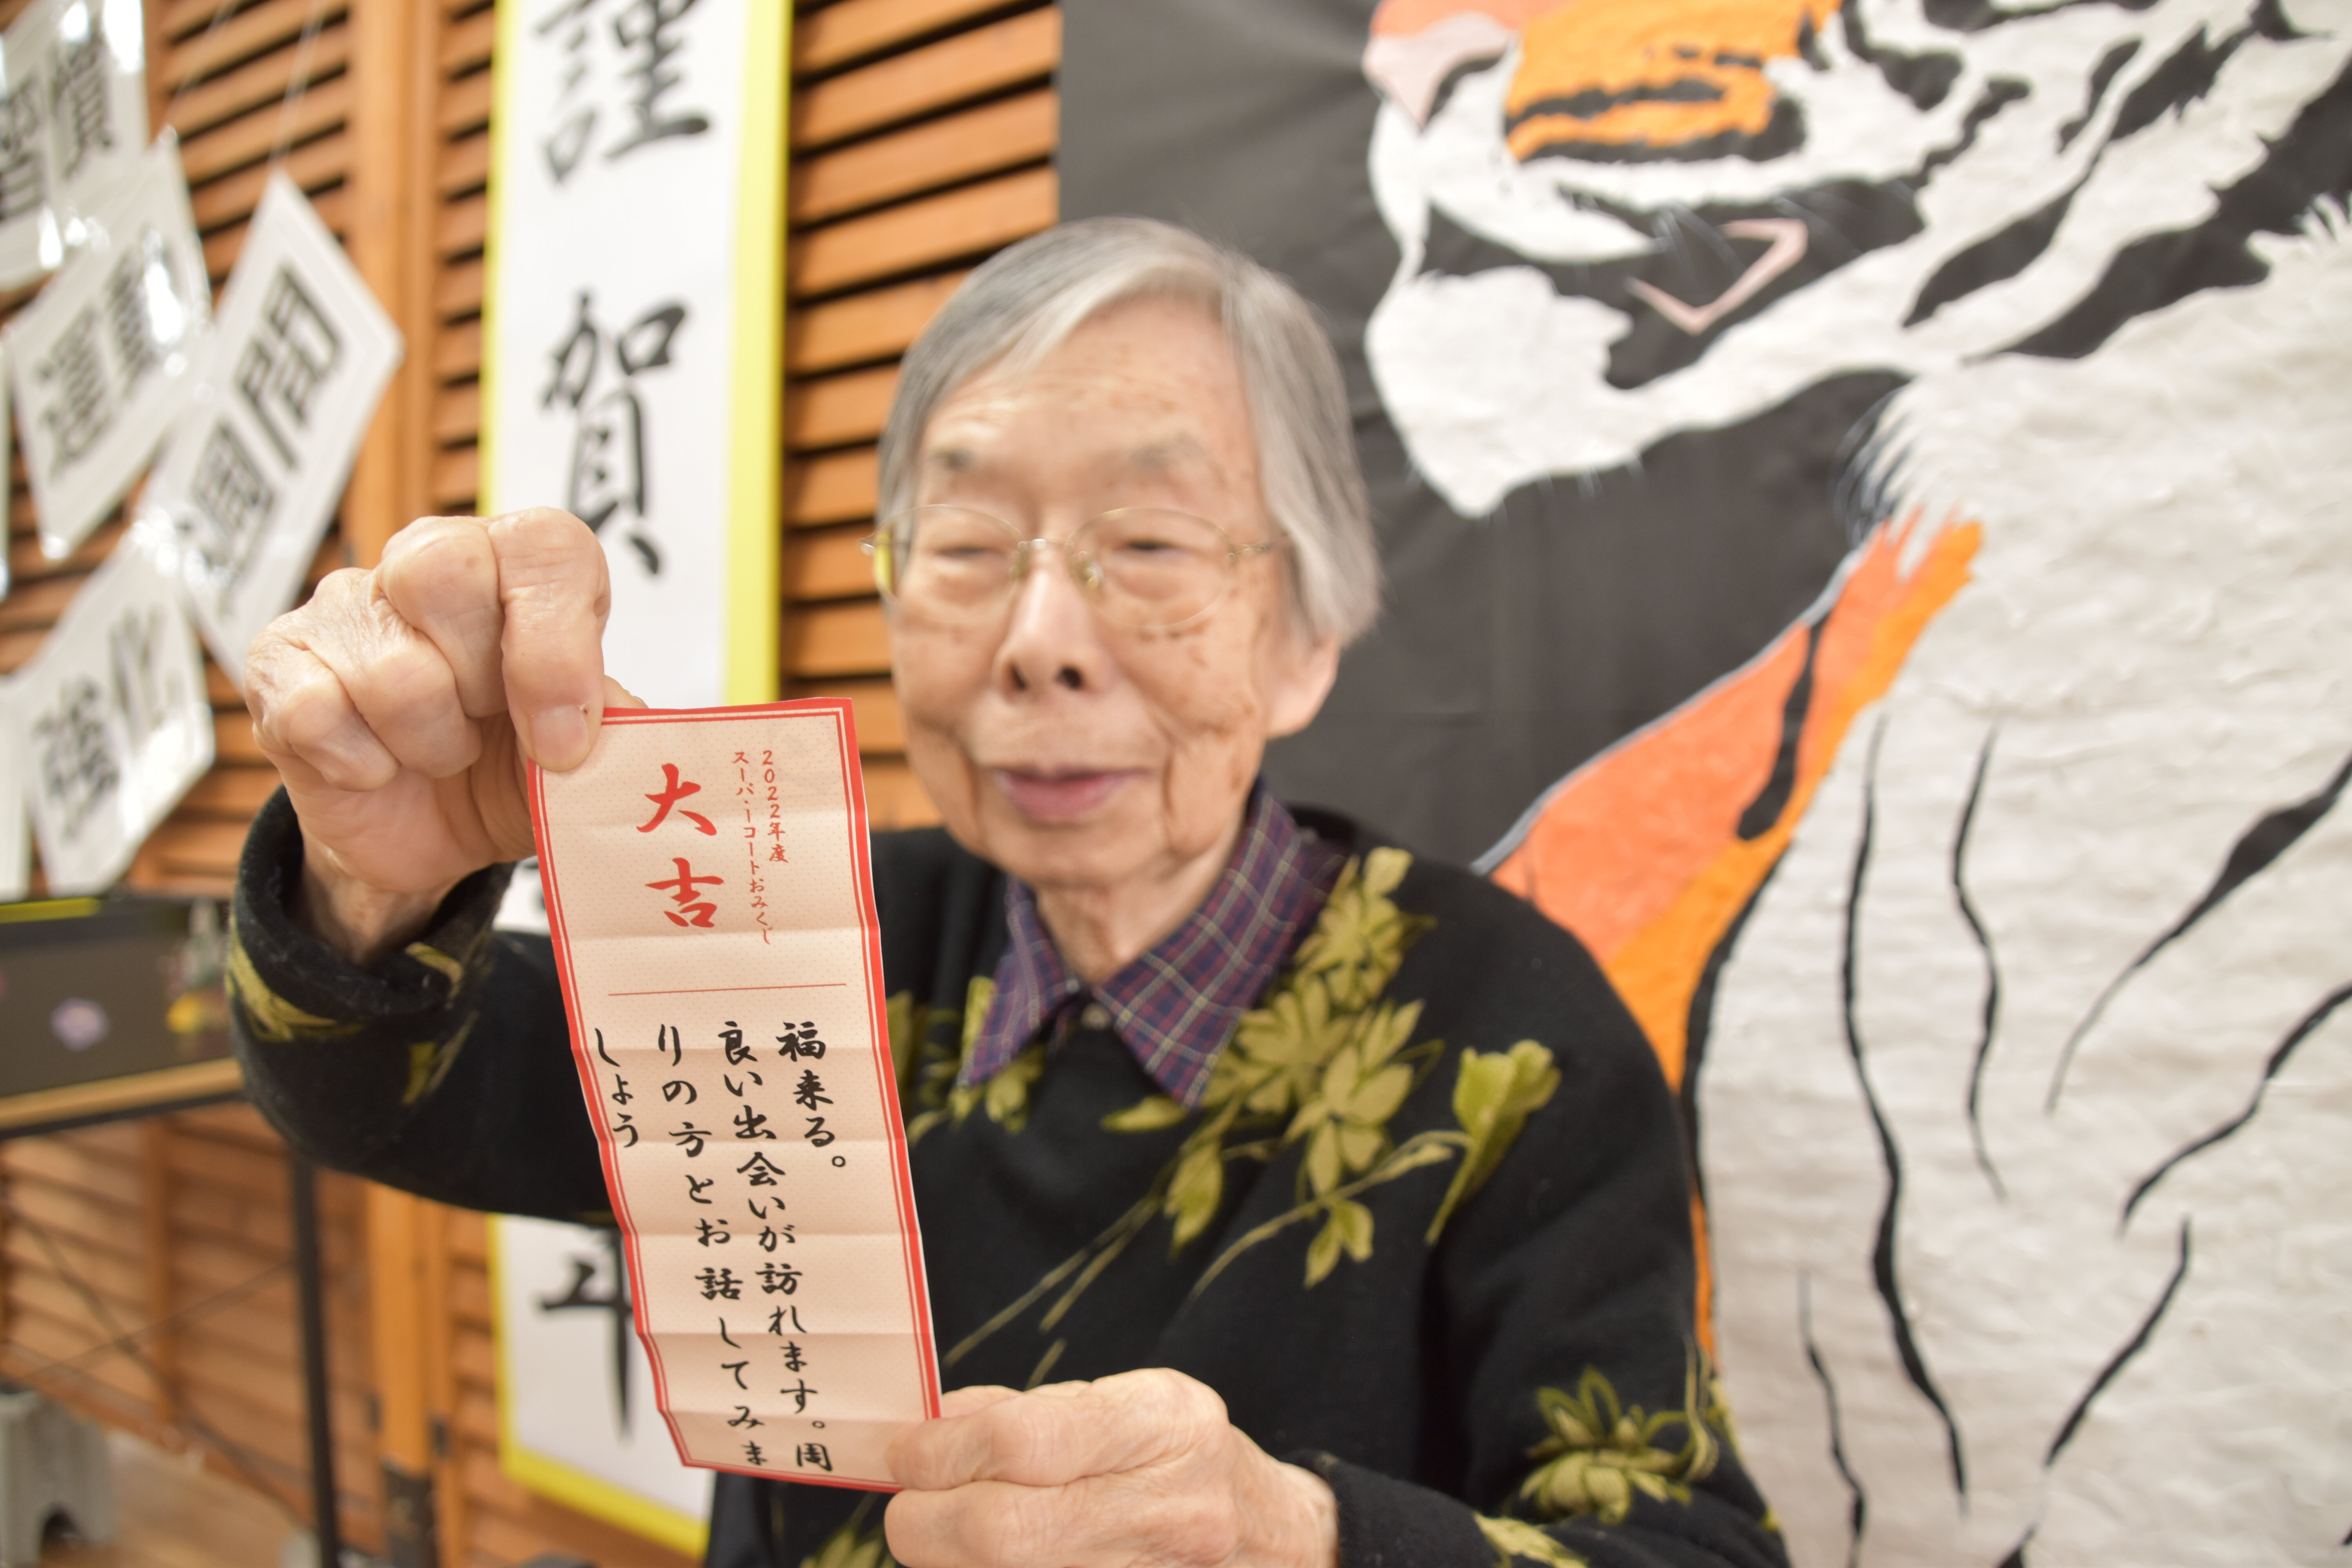 2022年度
スーパーコートおみくじ
大吉
福来る。
良い出会いが訪れます。周
りの方とお話してみま
しょう
謹賀
年
週間
強化
運動
習慣